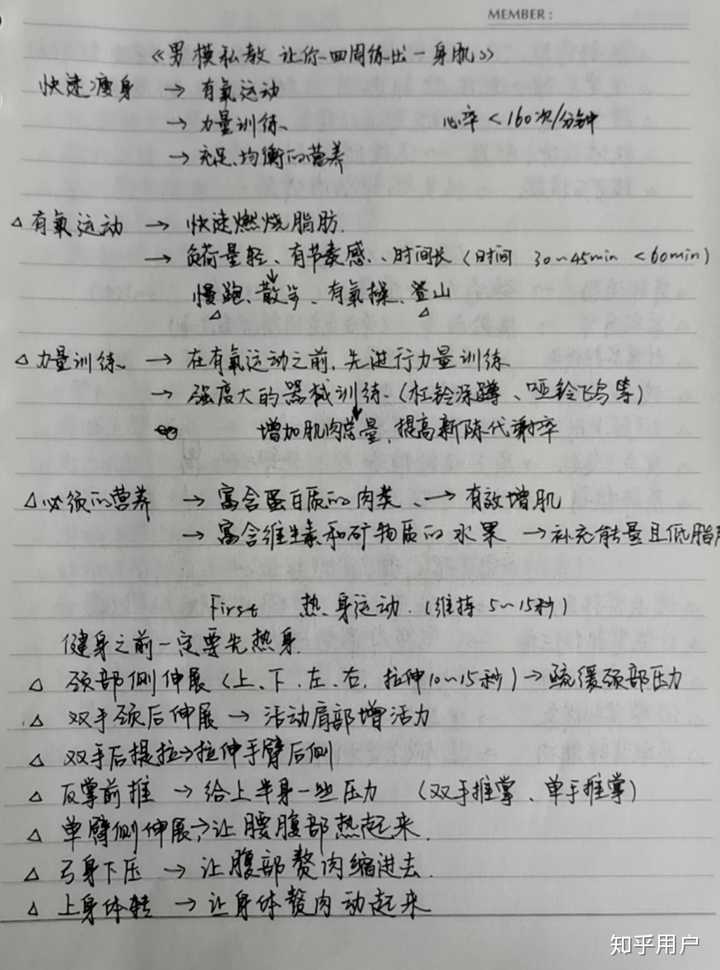 MEMBER:
《男模私教 让你四周练出一身肌》
快速瘦身 → 有氧运动
→ 力量训练、 心率<160次/分钟
→ 充足、均衡的营养
△ 有氧运动 → 快速燃烧脂肪.
→ 负荷量轻、有节奏感、、时间长 (时间 30~45min <60min)
慢跑、散步、有氧操、登山
△ 力量训练 → 在有氧运动之前,先进行力量训练
→ 强度大的器械训练、(杠铃深蹲、哑铃飞鸟等)
增加肌肉含量,提高新陈代谢率
△ 必须的营养 → 富含蛋白质的肉类、→ 有效增肌
→ 富含维生素和矿物质的水果 → 补充能量且低脂
First 热身运动.(维持5~15秒)
健身之前一定要先热身.
△ 颈部侧伸展(上、下、左、右, 拉伸10~15秒)→ 缓颈部压力
△ 双手颈后伸展 → 活动肩部增活力
△ 双手后提拉→拉伸手臂后侧
△ 反掌前推 → 给上半身一些压力 (双手推掌、单手推掌)
△ 单臂侧伸展→让腰腹部热起来.
△ 弓身下压 → 让腹部赘肉缩进去.
△ 上身体转 → 让身体赘肉动起来
知乎用户